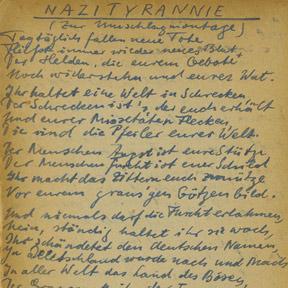 NAZITYRANNIE
(Zur Umschlagmontage)
Tagtäglich fallen neue Tote,
fließt immer wieder neues Blut,
Der Helden, die eurem Gebote
Noch widerstehn und eurer Wut.
Ihr haltet eine Welt in Schrecken
Der Schrecken ist's, der euch erhält
Und eurer Missetaten Flecken,
Sie sind die Pfeiler eurer Welt.
Der Menschen Angst ist eure Stütze
Der Menschen Furcht ist euer Schild
Ihr macht das Zittern euch zunütze
Vor eurem graus'gen Götzenbild.
Und niemals darf die Furcht erlahmen,
Nein, ständig haltet ihr sie wach,
Ihr schändetet den deutschen Namen,
Ja Deutschland wurde nach und nach
In aller Welt das Land des Bösen,
Der